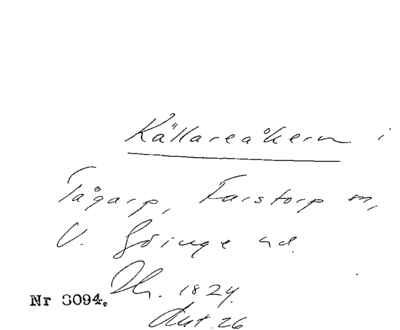 Källareåkern i
Tågarp, Farstorp sn,
V. Göinge hd.
Nr 8094. Sk. 1824.
Ant. 26